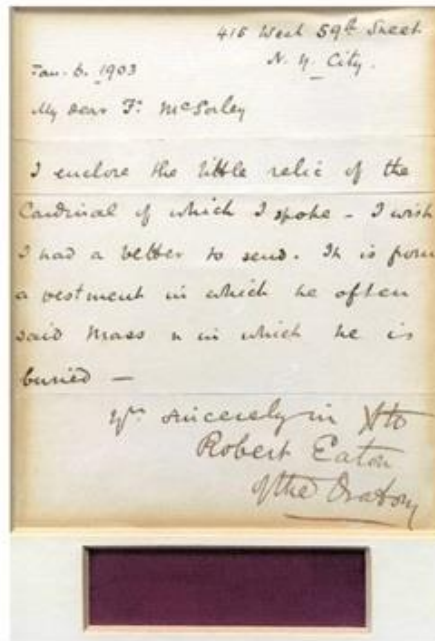 415 West 59th Street
N.Y. City.
Jan. 6. 1903
My dear Fr. McSorley
I enclose the little relic of the
Cardinal of which I spoke - I wish
I had a better to send. It is from
a vestment in which he often
said Mass & in which he is
buried —
Yrs sincerely in Xto
Robert Eaton
of the Oratory